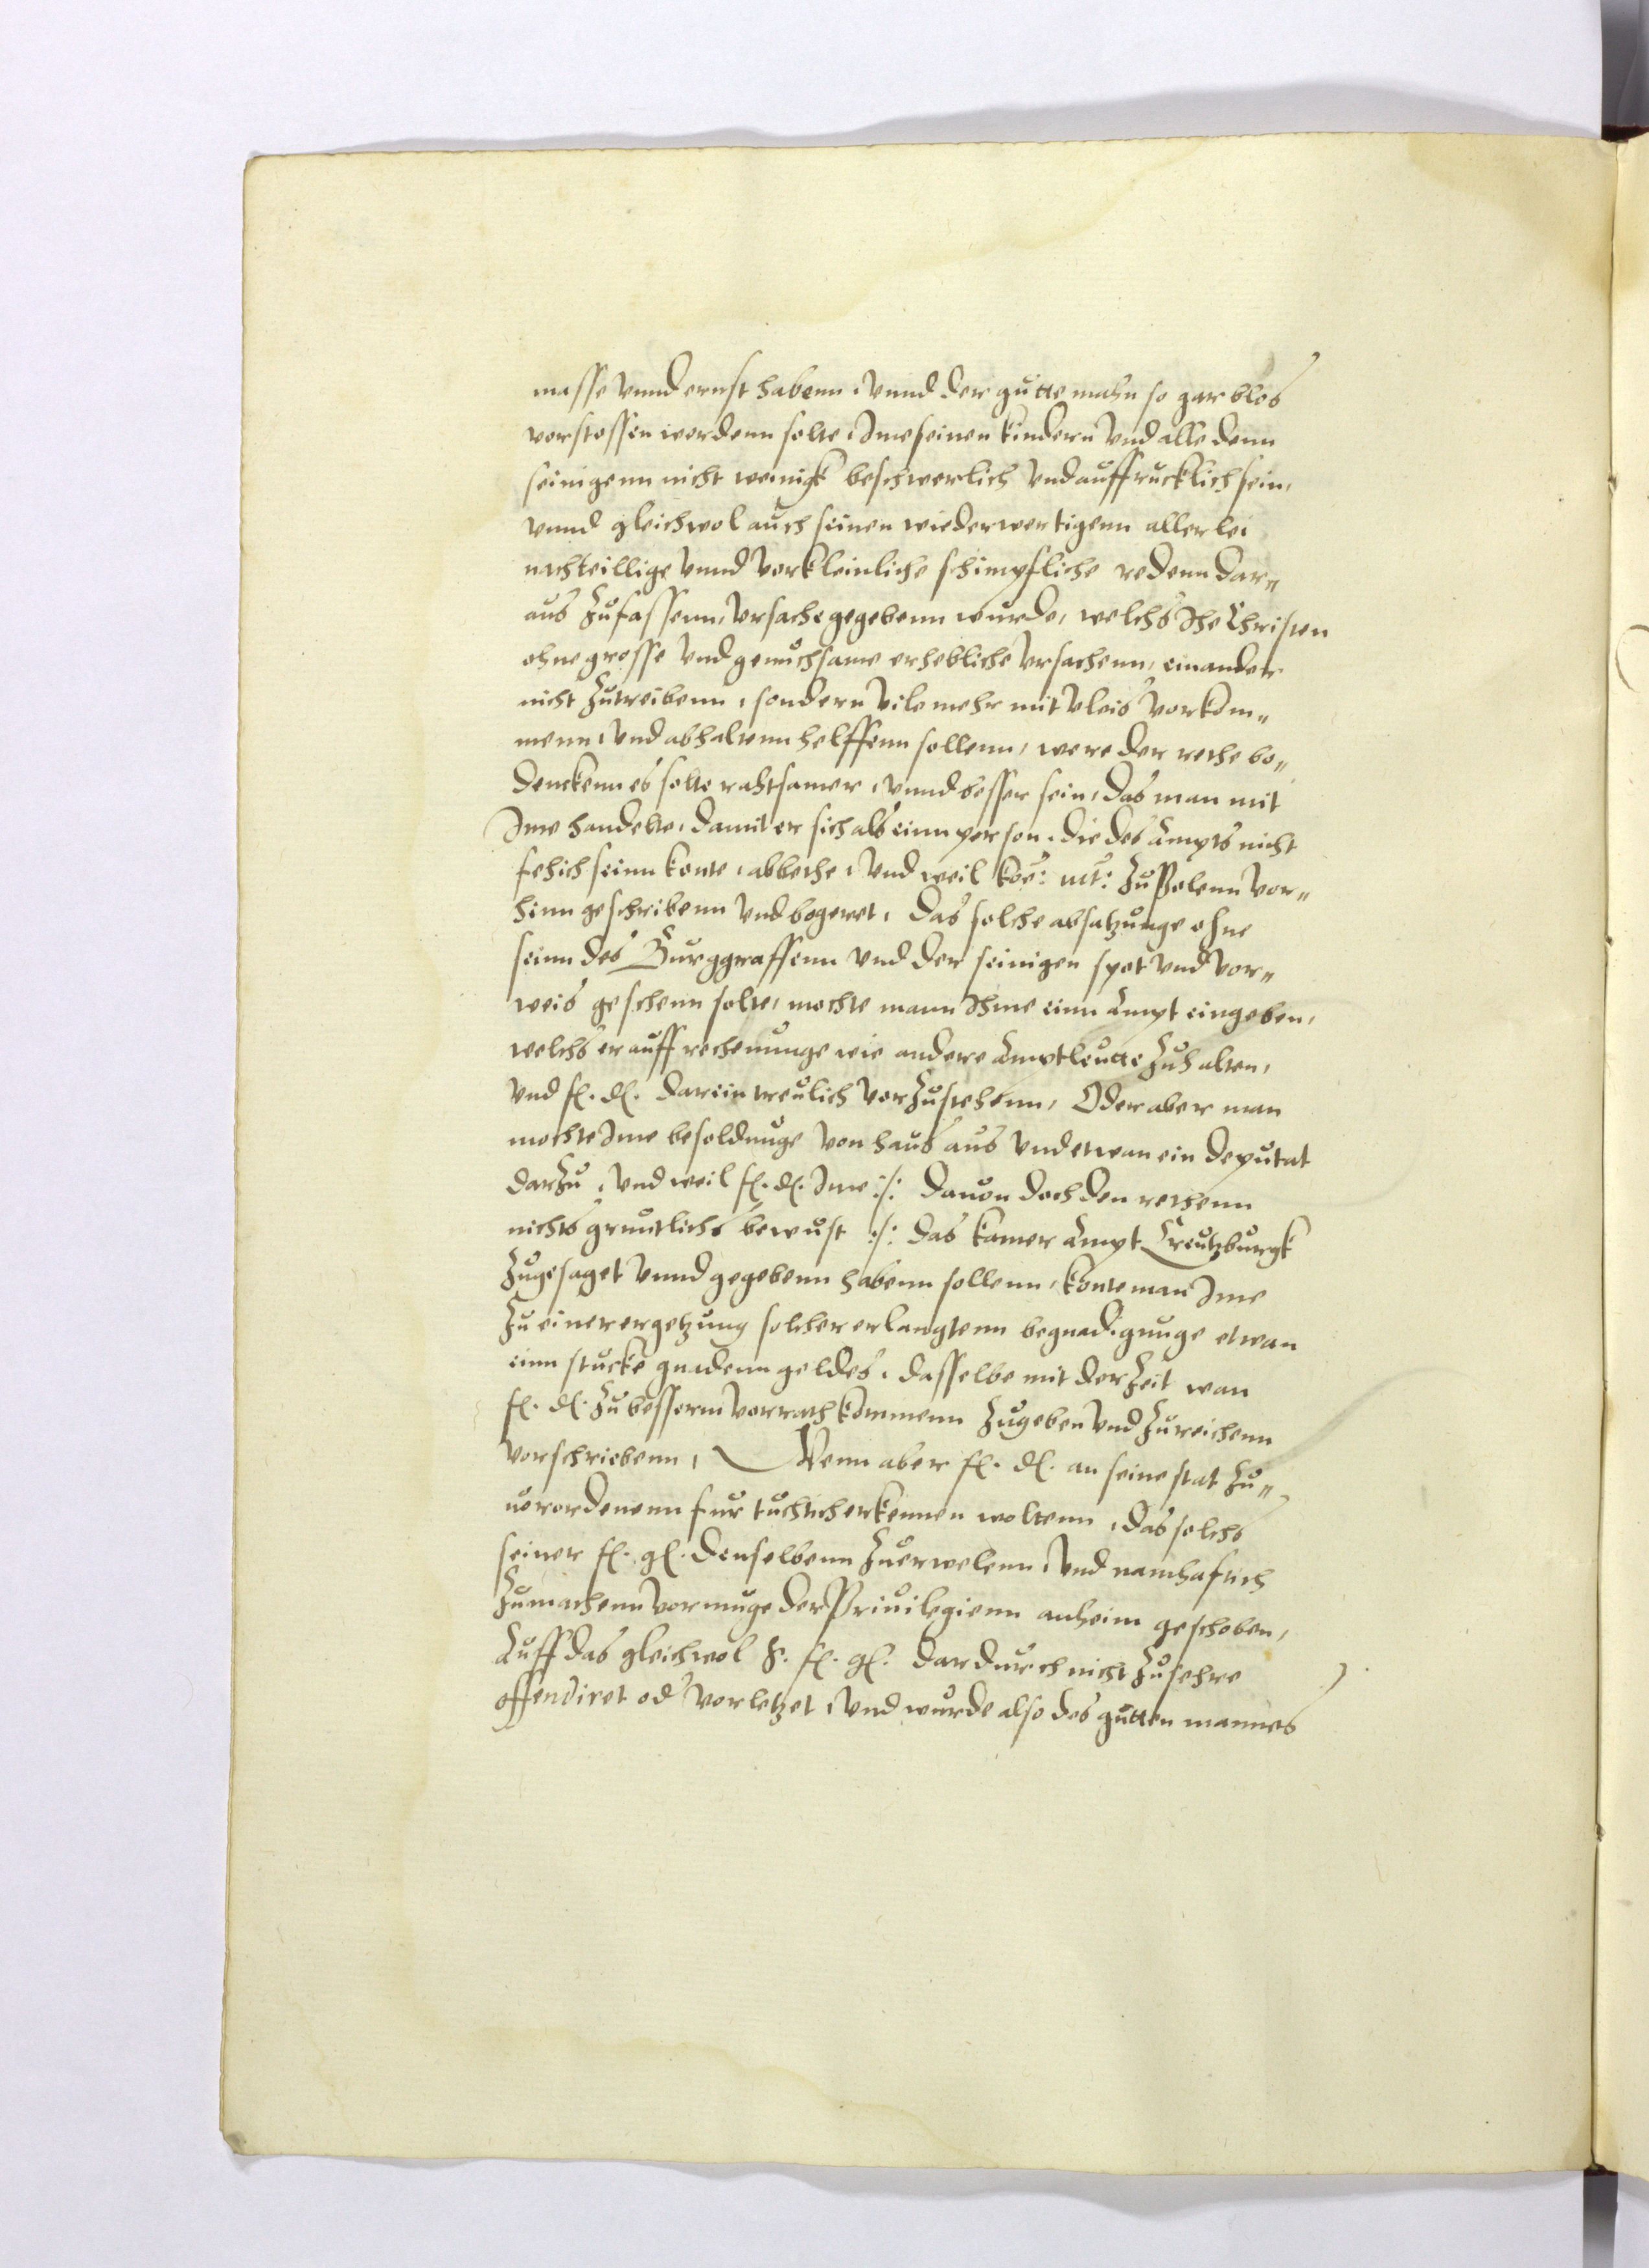 masse vnnd ernst habenn, vnnd der gutte mahn so gar blos
verstossen werdenn solte, Ime seinen kindern vnd alle denn
seinigenn nicht wenigk beschwerlich vnd auffrucklich sein,
vnnd gleichwol auch seinen wiederwertigenn allerlei
nachteillige vnnd vorkleinliche schimpfliche redenn dar„
aus zufassenn, vrsache gegebenn wurde, welchs Ihe Christen
ohne grosse vnd genuchsame erhebliche vrsachenn, einander
nicht zutreibenn, sondern vile mehr mit vleis vorkom„
menn, vnd abhaltenn helffenn sollenn, were der rethe be„
denckenn es solte rahtsamer, vnnd besser sein, das man mit
Ime handelte, damit er sich als einn person, die des Ampts nicht
fehich seinn konte, abbethe, vnd weil Koe: Mt: zu Polenn vor„
hinn geschribenn vnd begeret, das solche absatzunge ohne
seinn des Burggraffenn vnd der seinigen spot vnd vor„
weis geschenn solte, mochte mann Ihme einn Ampt eingeben,
welchs er auff rechenunge wie andere Amptleutte zuhalten,
vnd fl. dl. darein treulich vorzustehenn, Oder aber man
mochte Ime besoldunge von haus aus vnd etwan ein deputat
darzu, vnd weil fl. dl. Ime :/: dauon doch den rethenn
nichts gruntlichs bewust :/: das kamer Ampt Creutzburgk
zugesaget vnnd gegebenn habenn sollenn, konte man Ime
zu einer ergetzung solcher erlangtenn begnadigunge etwan
einn stucke gnadenn geldes, dasselbe mit der zeit wan
fl. dl. zu besserm vorrath kommenn zugeben vnd zureichenn
vorschriebenn, Wenn aber fl. dl. an seine stat zu„
uorordenenn fur tuchtich erkennen woltenn, das solchs
seiner fl. gl. denselbenn zuerwelenn, vnd namhaftich
zumachenn vormuge der Priuilegienn anheim geschoben,
Auff das gleichwol S. fl. gl. dardurch nicht zusehre
offendiret od vorletzet, vnd wurde also des gutten mannes